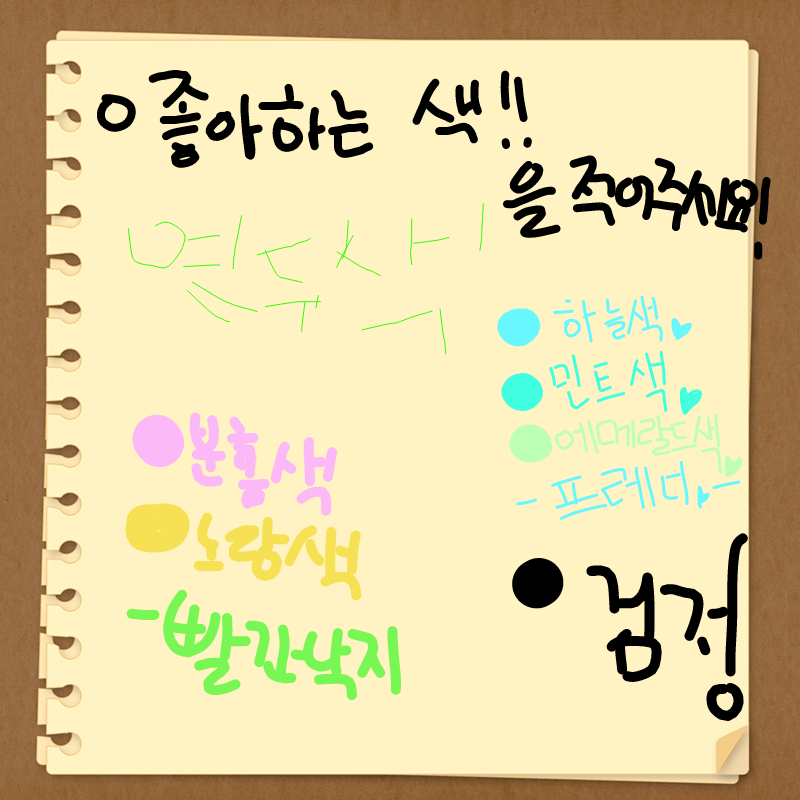 ㅇ 좋아하는 색!!
을 적어주세요!
연두색
하늘색
민트색
에메랄드색
- 프레너 -
분홍색
노랑색
- 빨간낙지
검정